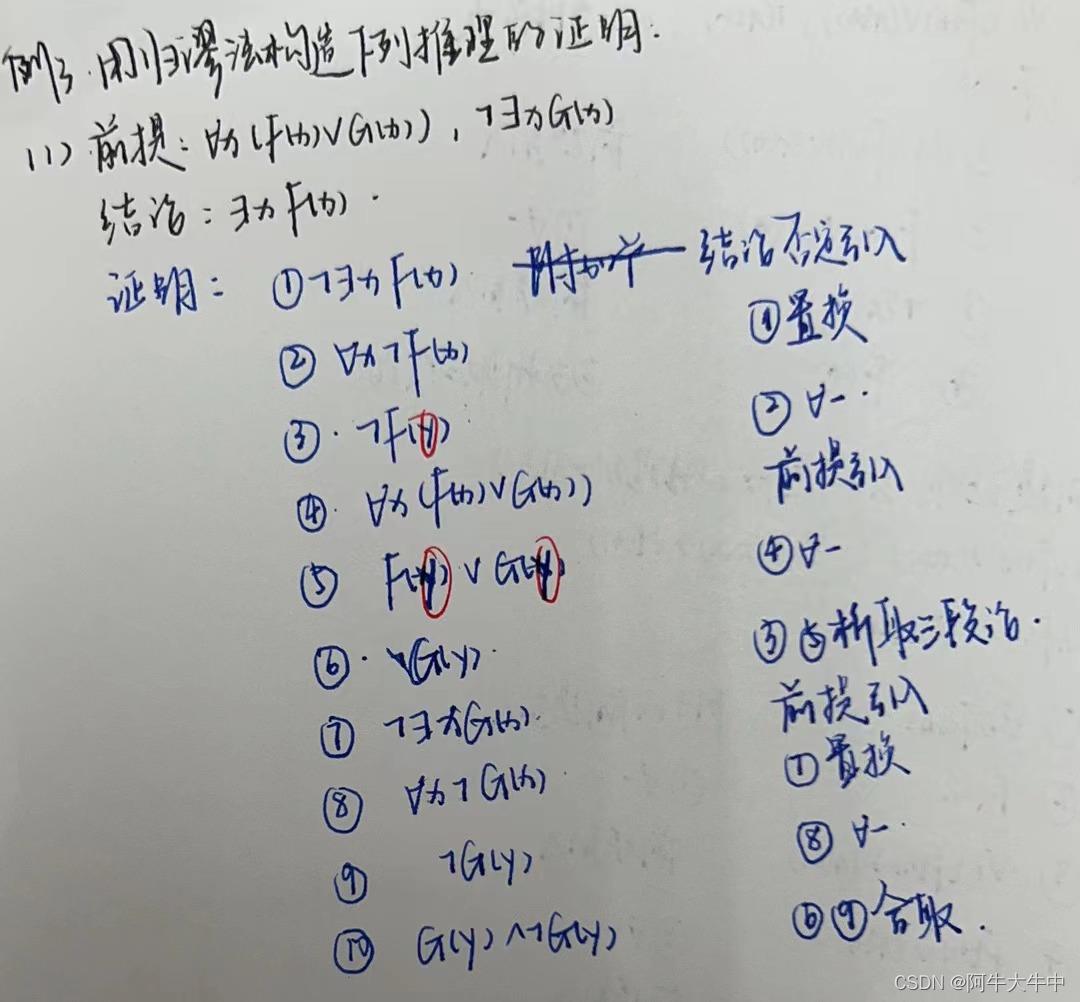 例3.用归谬法构造下列推理的证明.
(1) 前提: ∀x(F(x)∨G(x)), ¬∃xG(x)
结论: ∃xF(x).
证明: ①¬∃xF(x). 结论否定引入
② ∀x¬F(x) ①置换
③. ¬F(y) ②∀-.
④. ∀x(F(x)∨G(x)) 前提引入
⑤ F(y)∨G(y) ④∀-
⑥. G(y). ③⑤析取三段论.
⑦ ¬∃xG(x). 前提引入
⑧ ∀x¬G(x) ⑦置换
⑨ ¬G(y) ⑧∀-.
⑩ G(y)∧¬G(y) ⑥⑨合取.
CSDN @阿牛大牛中